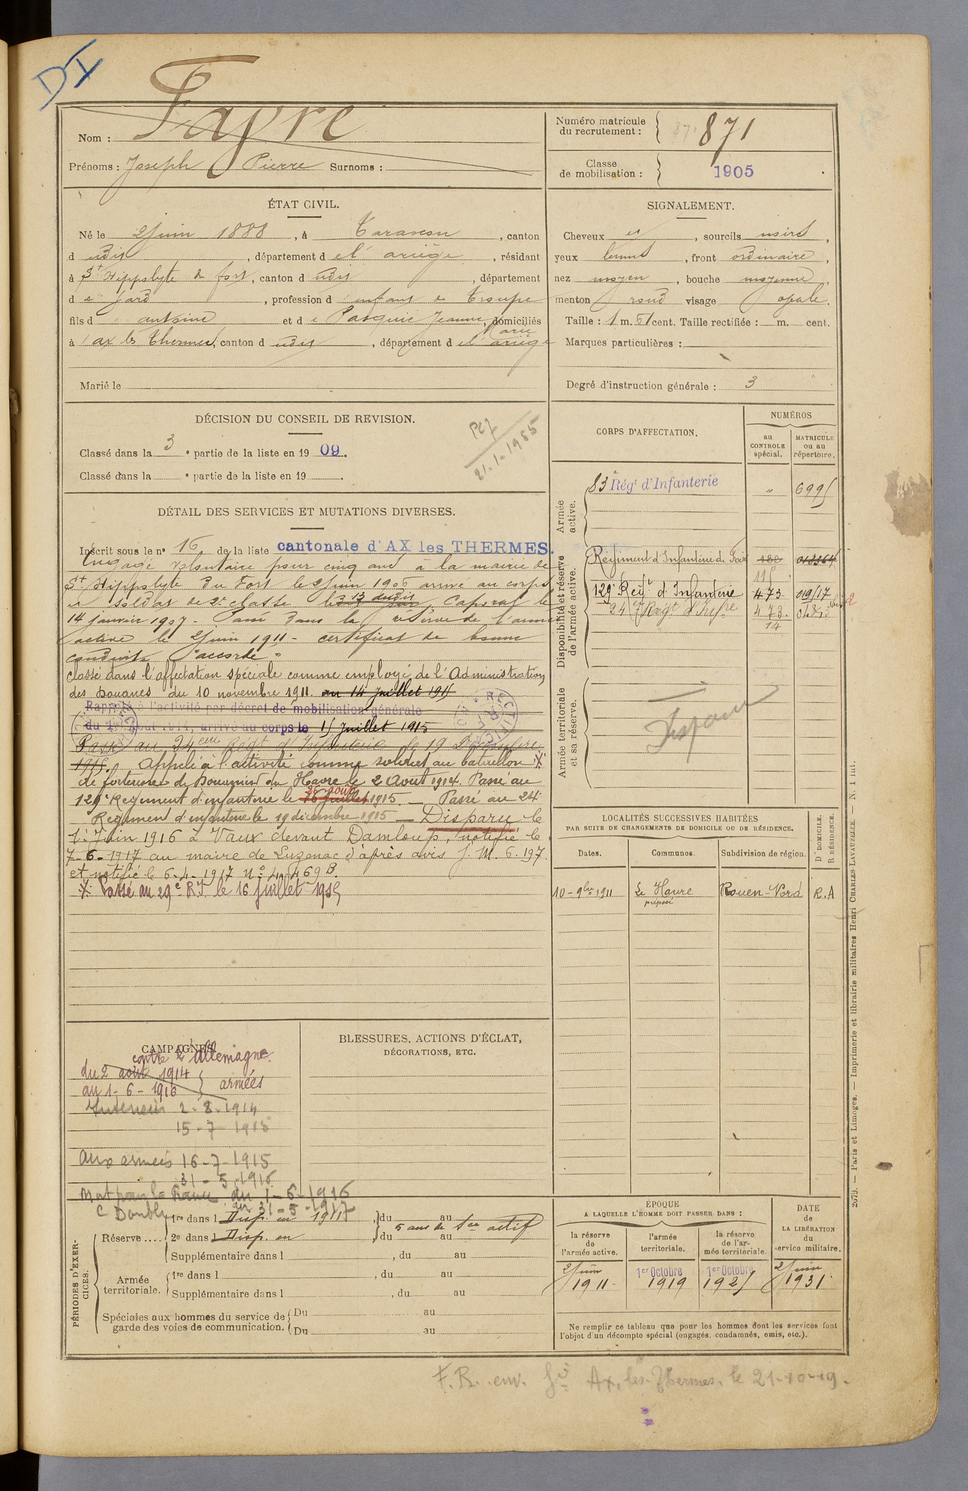 DI
Nom : Fayre
Prénoms : Joseph Pierre Surnoms :
Numéro matricule du recrutement : 871
Classe de mobilisation : 1905
ÉTAT CIVIL.
Né le 2 juin 1888, à Tarascon, canton
d udit, département d e l'ariège, résidant
à St Hippolyte du fort, canton d udit, département
d u gard, profession d enfant de Troupe
fils d antoine et d e Pasquié Jeanne Marie, domiciliés
à ax les Thermes, canton d udit, département d e l'ariège
Marié le
SIGNALEMENT.
Cheveux et, sourcils noirs,
yeux, front ordinaire,
nez moyen, bouche moyenne,
menton rond visage ovale.
Taille : 1 m. 51 cent. Taille rectifiée : m. cent.
Marques particulières :
Degré d'instruction générale : 3
DÉCISION DU CONSEIL DE REVISION.
Classé dans la 3e partie de la liste en 1909.
Classé dans la e partie de la liste en 19 .
21-1-1985
DÉTAIL DES SERVICES ET MUTATIONS DIVERSES.
Inscrit sous le n° 16 de la liste cantonale d'AX les THERMES.
Engagé volontaire pour cinq ans à la mairie de
St Hippolyte du Fort le 2 juin 1906 arrivé au corps
et soldat de 2e classe le 13 dudit, Caporal le
14 janvier 1907. Passé dans la réserve de l'armée
active le 2 juin 1911 - certificat de bonne
conduite "accordé"
Classé dans l'affectation spéciale comme employé de l'Administration
des Douanes du 10 novembre 1911. au 14 juillet 1915
Rappelé à l'activité par décret de mobilisation générale
du 1er août 1914, arrivé au corps le 15 juillet 1915
Passé au 24eme Régt d'Infanterie le 19 Décembre
1915. Appelé à l'activité comme soldat au bataillon
de forteresse de Douaniers du Havre le 2 Août 1914. Passé au
129e Régiment d'infanterie le 16 juillet 1915 — Passé au 24e
Régiment d'infanterie le 19 décembre 1915 — Disparu le
1er Juin 1916 à Vaux devant Damloup, notifié le
7-6-1917 au maire de Luzenac d'après avis J. M. 6. 197
et notifié le 6-4-1917 N°
Passé au 29e RI. le 16 juillet 1915
CORPS D'AFFECTATION.
NUMÉROS
au CONTROLE spécial.
MATRICULE ou au répertoire.
Armée active.
83e Régt d'Infanterie " 6995
Disponibilité et réserve de l'armée active.
Régiment d'Infanterie de Foix
129e Régt d'Infanterie 473
24e Régt d'Infie 473
Armée territoriale et sa réserve.
Disparu
LOCALITÉS SUCCESSIVES HABITÉES
PAR SUITE DE CHANGEMENTS DE DOMICILE OU DE RÉSIDENCE.
Dates. Communes. Subdivision de région. D DOMICILE. R RÉSIDENCE.
10-9bre 1911 Le Havre Rouen-Nord R.A
préposé
CAMPAGNES.
contre l'Allemagne
du 2 août 1914
au 1-6-1916 } armées
Intérieur 2-8-1914
15-7-1915
Aux armées 16-7-1915
31-5-1916
Mort pour la France du 1-6-1916
C Double au 31-5-1917
BLESSURES, ACTIONS D'ÉCLAT,
DÉCORATIONS, ETC.
PÉRIODES D'EXERCICES.
Réserve.... 1re dans l Disp. en 1911, du au
5 ans de Sce actif
2e dans l Disp. en, du au
Supplémentaire dans l , du au
Armée territoriale. 1re dans l , du au
Supplémentaire dans l , du au
Spéciales aux hommes du service de garde des voies de communication. Du au
Du au
ÉPOQUE
A LAQUELLE L'HOMME DOIT PASSER DANS :
la réserve de l'armée active.
l'armée territoriale.
la réserve de l'armée territoriale.
DATE DE LA LIBÉRATION du service militaire.
2 juin 1911
1er Octobre 1919
1er Octobre 1925
2 juin 1931
Ne remplir ce tableau que pour les hommes dont les services font
l'objet d'un décompte spécial (engagés, condamnés, omis, etc.).
2079. — Paris et Limoges. — Imprimerie et librairie militaires Henri CHARLES-LAVAUZELLE. — N. 1 int.
F. R. env. Gie Ax-les-Thermes. le 21-10-19.